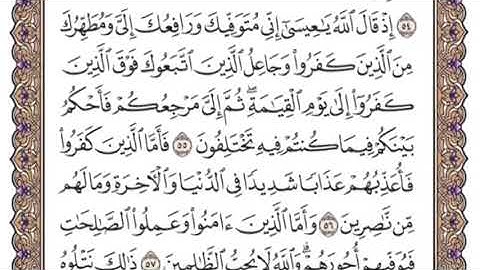 ٥٤ إِذْ قَالَ ٱللَّهُ يَـٰعِيسَىٰٓ إِنِّى مُتَوَفِّيكَ وَرَافِعُكَ إِلَىَّ وَمُطَهِّرُكَ
مِنَ ٱلَّذِينَ كَفَرُوا۟ وَجَاعِلُ ٱلَّذِينَ ٱتَّبَعُوكَ فَوْقَ ٱلَّذِينَ
كَفَرُوٓا۟ إِلَىٰ يَوْمِ ٱلْقِيَـٰمَةِ ۖ ثُمَّ إِلَىَّ مَرْجِعُكُمْ فَأَحْكُمُ
بَيْنَكُمْ فِيمَا كُنتُمْ فِيهِ تَخْتَلِفُونَ ٥٥ فَأَمَّا ٱلَّذِينَ كَفَرُوا۟
فَأُعَذِّبُهُمْ عَذَابًا شَدِيدًا فِى ٱلدُّنْيَا وَٱلْـَٔاخِرَةِ وَمَا لَهُم
مِّن نَّـٰصِرِينَ ٥٦ وَأَمَّا ٱلَّذِينَ ءَامَنُوا۟ وَعَمِلُوا۟ ٱلصَّـٰلِحَـٰتِ
فَيُوَفِّيهِمْ أُجُورَهُمْ ۗ وَٱللَّهُ لَا يُحِبُّ ٱلظَّـٰلِمِينَ ٥٧ ذَٰلِكَ نَتْلُوهُ